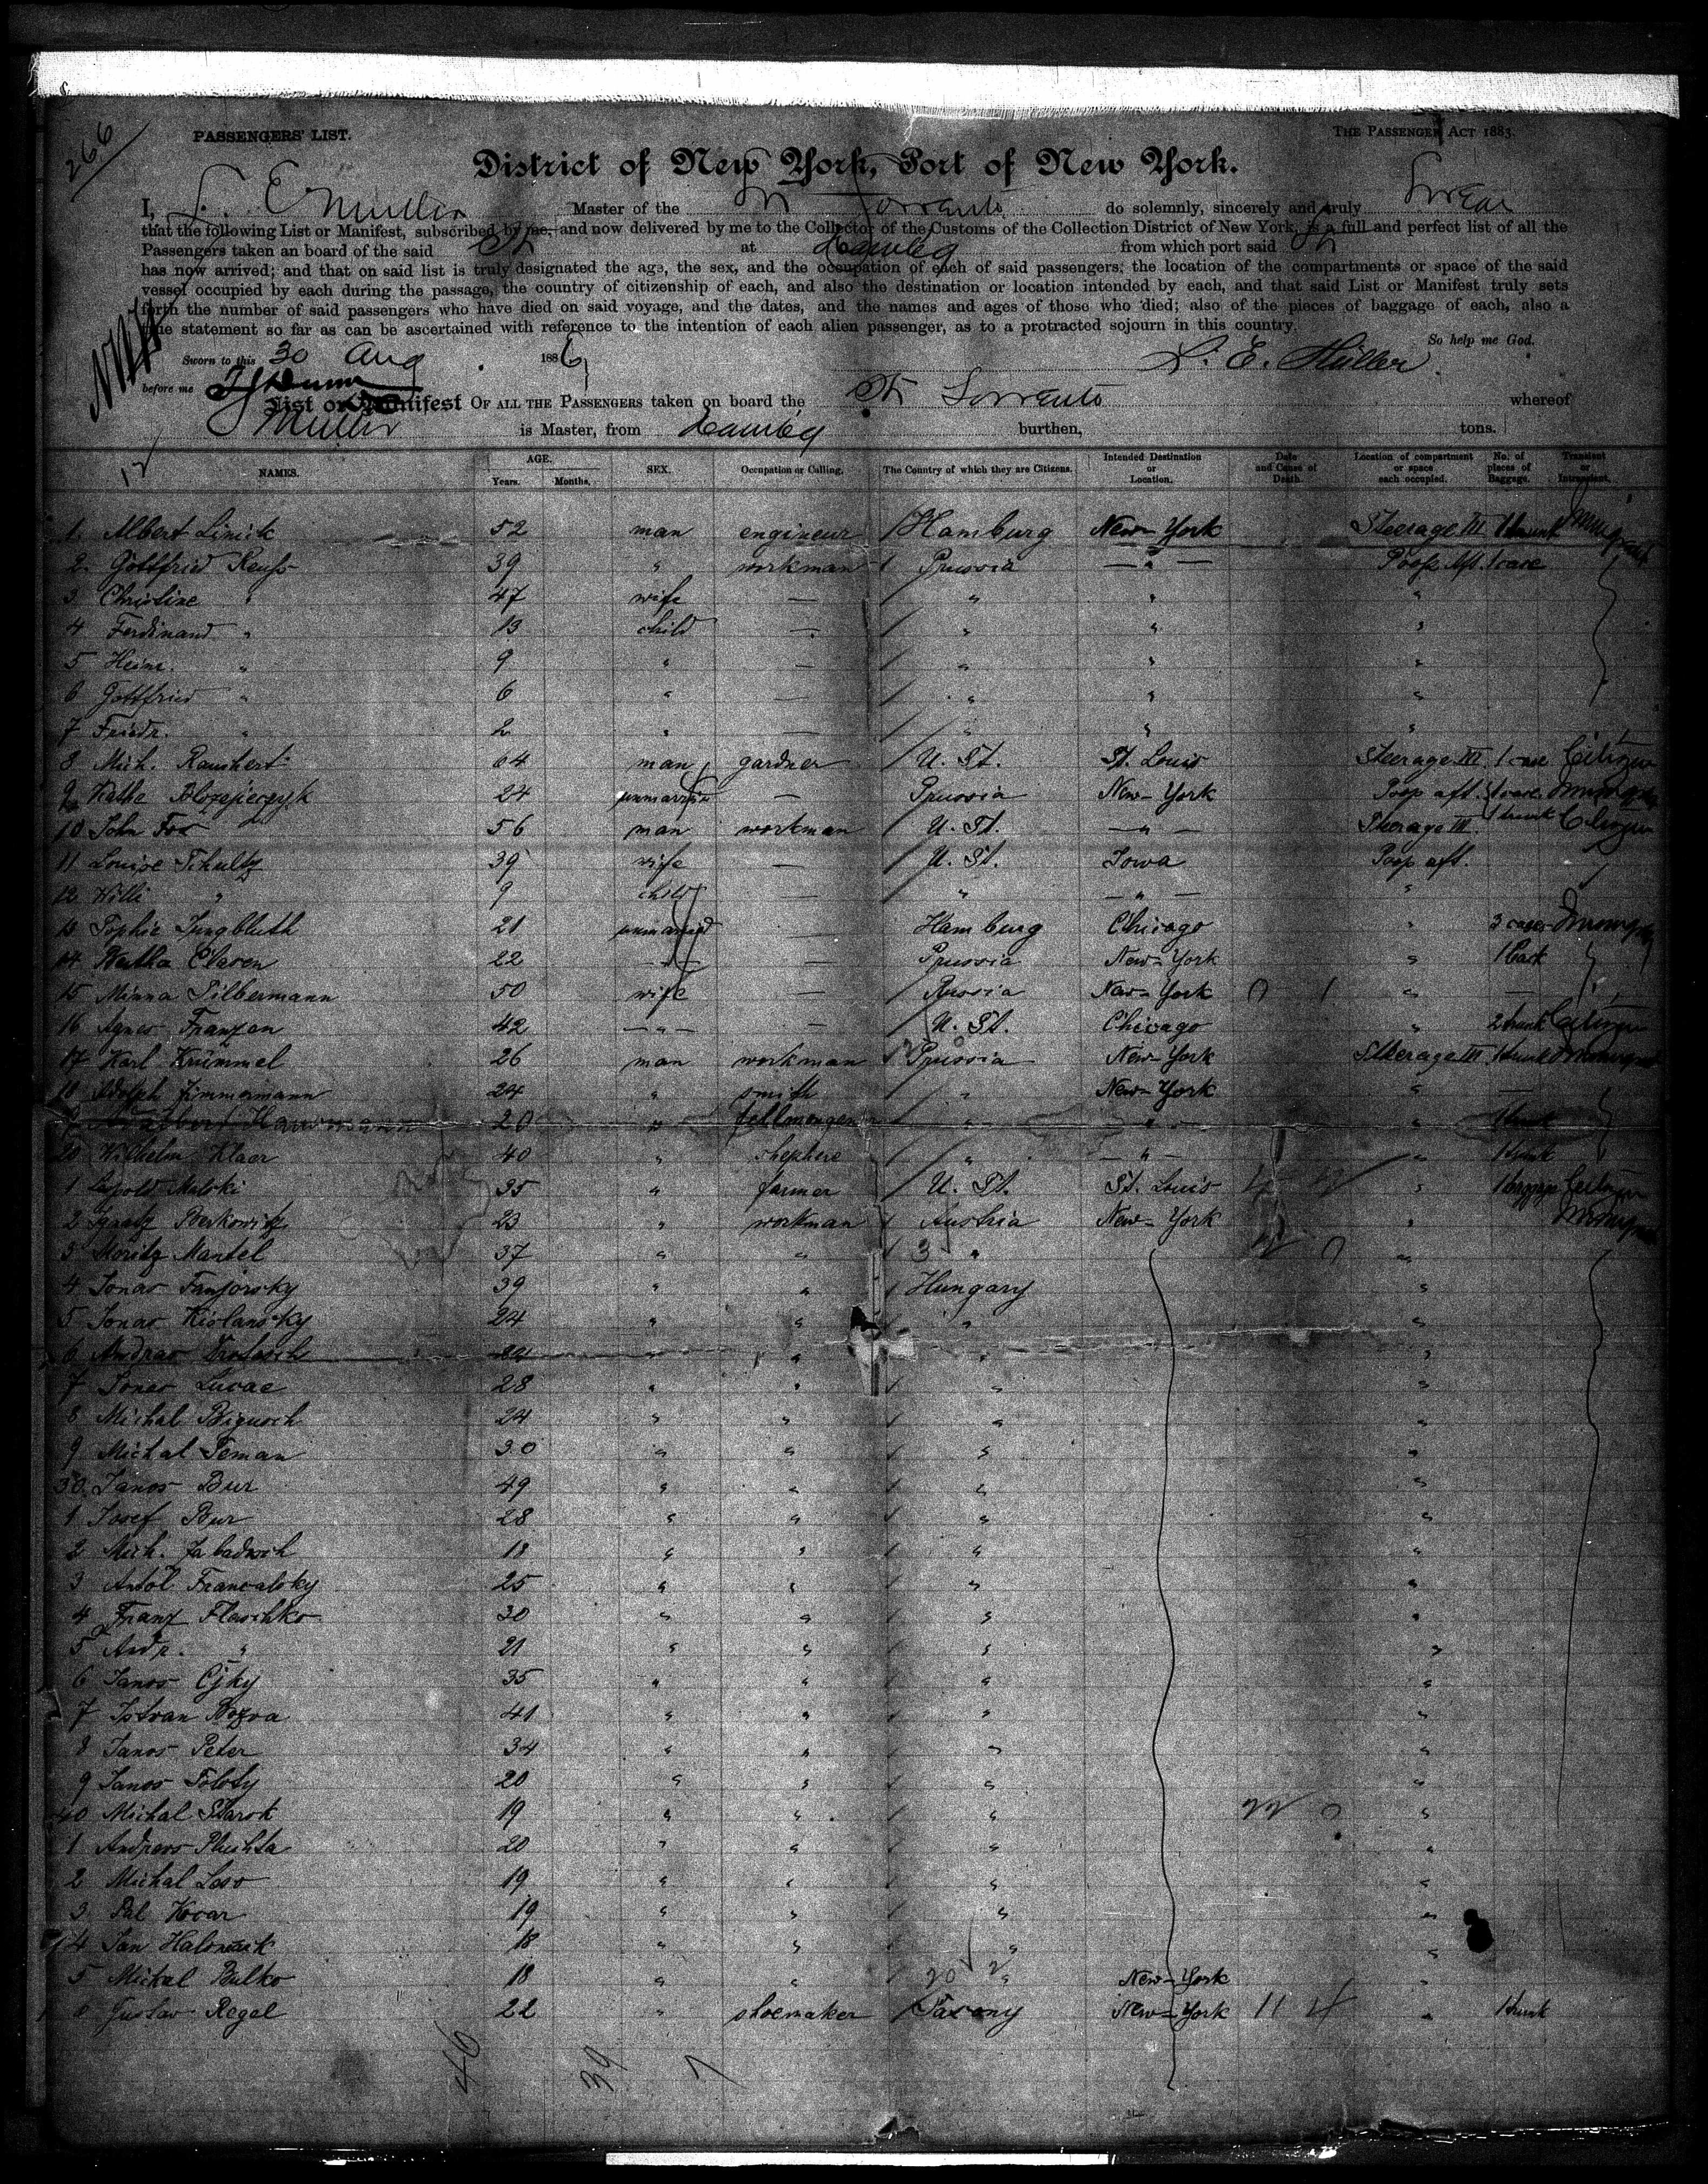 266
PASSENGERS' LIST.
THE PASSENGER ACT 1883.
District of New York, Port of New York.
I, L. E Muller Master of the Str Sorrento do solemnly, sincerely and truly swear
that the following List or Manifest, subscribed by me, and now delivered by me to the Collector of the Customs of the Collection District of New York, is a full and perfect list of all the
Passengers taken on board of the said Str at Hambg from which port said Str
has now arrived; and that on said list is truly designated the age, the sex, and the occupation of each of said passengers; the location of the compartments or space of the said
vessel occupied by each during the passage, the country of citizenship of each, and also the destination or location intended by each, and that said List or Manifest truly sets
forth the number of said passengers who have died on said voyage, and the dates, and the names and ages of those who died; also of the pieces of baggage of each, also a
true statement so far as can be ascertained with reference to the intention of each alien passenger, as to a protracted sojourn in this country.
So help me God.
Sworn to this 30 Aug 1886
L. E. Müller.
before me
List or Manifest OF ALL THE PASSENGERS taken on board the Str Sorrento whereof
Muller is Master, from Hambg burthen, tons.
12
NAMES. AGE. Years. Months. SEX. Occupation or Calling. The Country of which they are Citizens. Intended Destination or Location. Date and Cause of Death. Location of compartment or space each occupied. No. of pieces of Baggage. Transient or Intransient.
1. Albert Linick 52 man engineur Hamburg New-York Steerage III 1 trunk
2. Gottfried Reuss 39 " workman Prussia — " — Poop Aft. 1 case
3 Christine " 47 wife — " " "
4 Ferdinand " 13 child — " " "
5 Heinr. " 9 " — " " "
6 Gottfried " 6 " — " " "
7 Friedr. " 2 " — " " "
8 Mich. Rauchert 64 man gardner U. St. St. Louis Steerage III 1 case Citizen
9 24 unmarried — Prussia New-York Poop aft. 1 case
10 John Fox 56 man workman U. St. — " — Steerage III. 1 trunk Citizen
11 Louise Schultz 39 wife — U. St. Iowa Poop aft.
12 Willi " 9 child — " — " — "
13 Sophie Jungbluth 21 unmarried — Hamburg Chicago " 3 cases
14 Bertha Claren 22 — " — — Prussia New-York "
15 Minna Silbermann 50 wife — Russia New-York " —
16 Agnes Franzen 42 — " — — U. St. Chicago " 2 trunk Citizen
17 Karl Krümmel 26 man workman Prussia New-York Steerage III 1 trunk
18 Adolph Zimmermann 24 " smith " New-York " —
20 " fellmonger " " " 1 trunk
20 Wilhelm Klaer 40 " shepherd " — " — " 1 trunk
1 Leopold Maloki 35 " farmer U. St. St. Louis " Citizen
2 Ignatz Berkowitz 23 " workman Austria New-York "
3 Moritz Mantel 37 " " " "
4 Jonas Fanjorsky 39 " " Hungary "
5 Jonas Kislansky 24 " " " "
6 Andras 24 " " " "
7 Jonas Lucac 28 " " " "
8 Michal Bigusch 24 " " " "
9 Michal Seman 30 " " " "
30. Janos Bur 49 " " " "
1 Josef Bur 28 " " " "
2 Mich. 18 " " " "
3 Antol Francalsky 25 " " " "
4 Franz Flaschko 30 " " " "
5 Andr. " 21 " " " "
6 Janos Cjky 35 " " " "
7 Istvan Bozva 41 " " " "
8 Janos Peter 34 " " " "
9 Janos Toloty 20 " " " "
40 Michal Starok 19 " " " "
1 Andreas Pluchta 20 " " " "
2 Michal Laso 19 " " " "
3 Pal Kocar 19 " " " "
4 Jan 18 " " " "
5 Michal Bulko 18 " " " New-York "
6 Gustav Regel 22 " shoemaker Saxony New-York 11 4 " 1 trunk
46 39 7